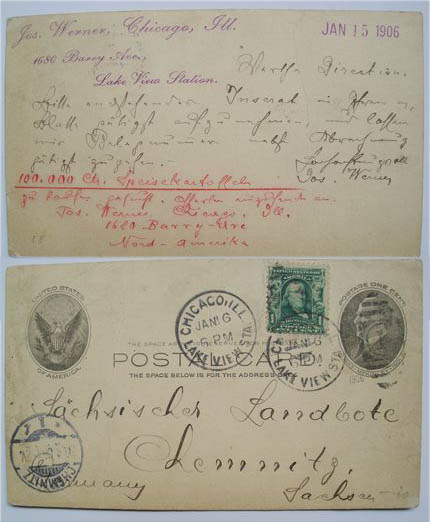 Jos. Werner, Chicago, Ill.
JAN 15 1906
1680 Barry Ave.,
Lake View Station.
Werthe Direction.
Bitte nachstehendes Inserat in Ihrem
Blatte gütigst aufzunehmen, und lassen
mir Belegnummer nebst Abrechnung
gütigst zugehen.
Jos. Werner
100.000 Ctr. Speisekartoffeln
zu kaufen gesucht. Offerten
Jos. Werner, Chicago, Ill.
1680 Barry-Ave
Nord-Amerika
58
UNITED STATES
OF AMERICA
CHICAGO, ILL.
JAN 16
6 PM
LAKE VIEW STA.
1
JAN 16
LAKE VIEW STA.
POSTAGE ONE CENT
1906
POSTAL CARD
THE SPACE BELOW IS FOR THE ADDRESS ONLY
Sächsischer Landbote
Chemnitz,
Germany Sachsen
CHEMNITZ